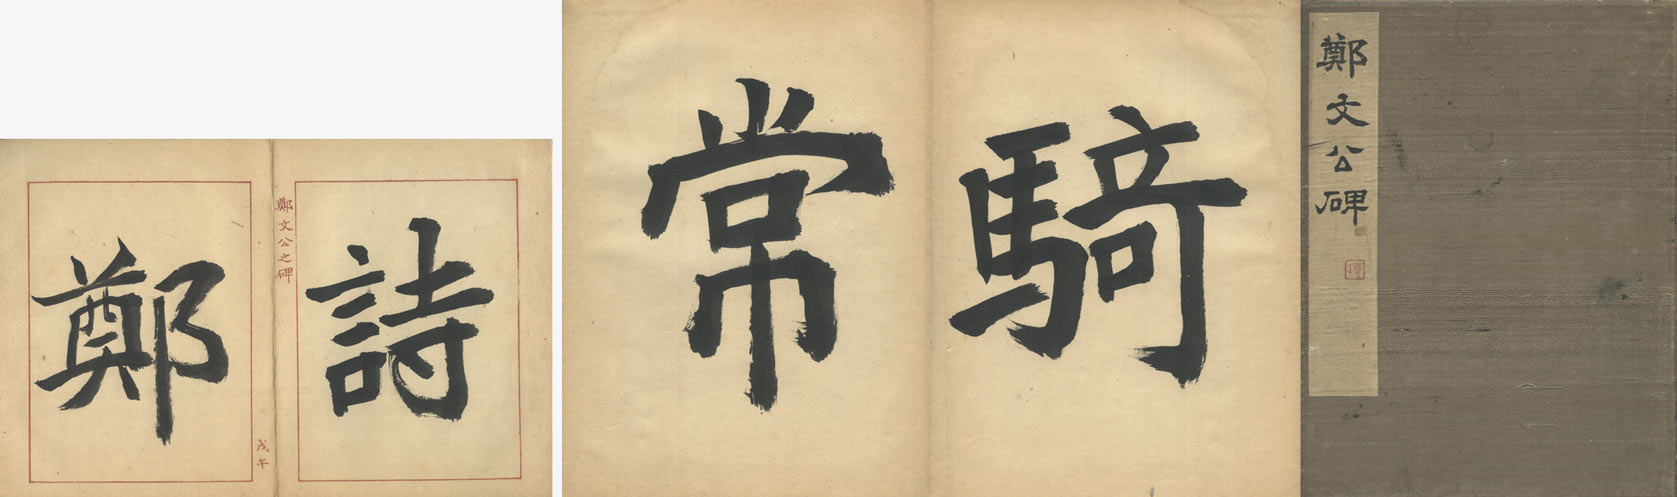 鄭文公碑
騎
常
詩
鄭文公之碑
戊午
鄭